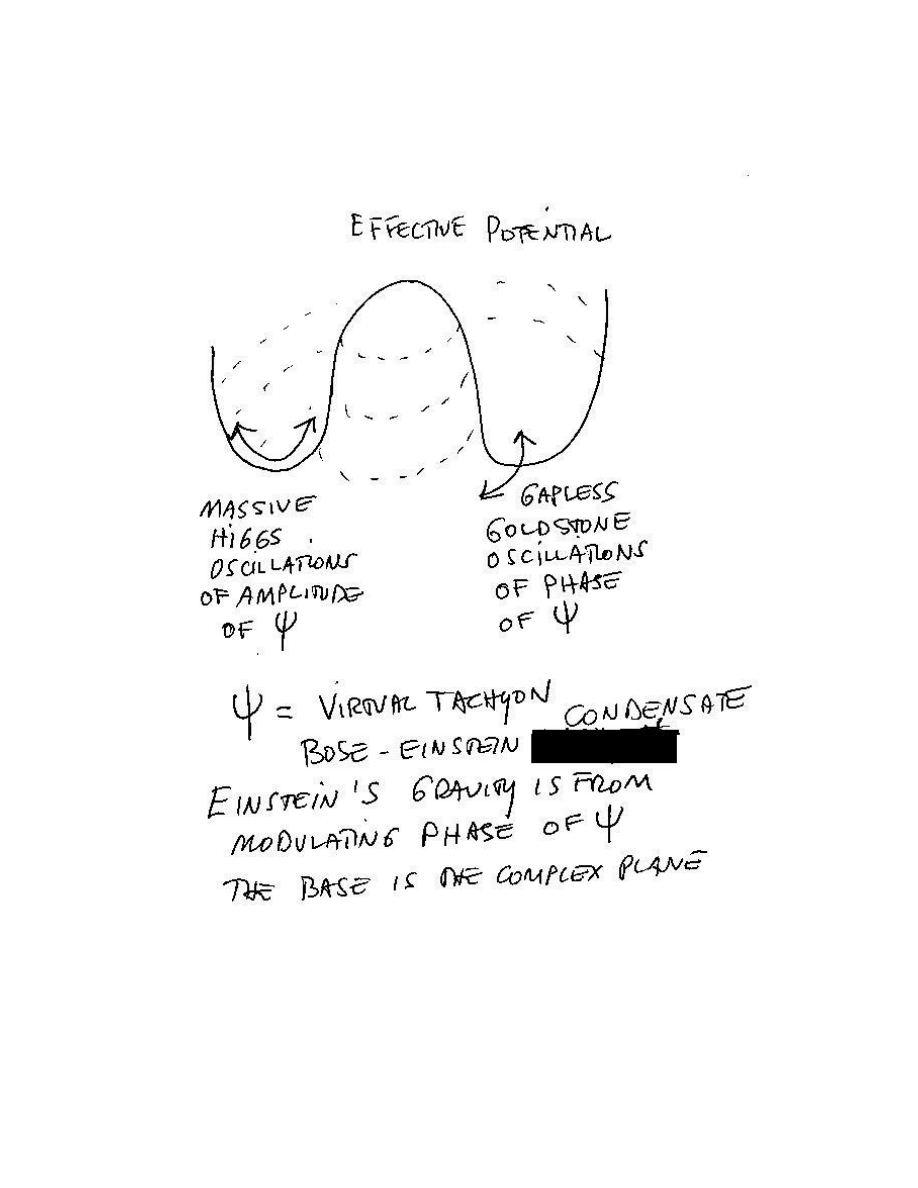 EFFECTIVE POTENTIAL
MASSIVE
HIGGS
OSCILLATIONS
OF AMPLITUDE
OF Ψ
GAPLESS
GOLDSTONE
OSCILLATIONS
OF PHASE
OF Ψ
Ψ = VIRTUAL TACHYON
BOSE-EINSTEIN CONDENSATE
EINSTEIN'S GRAVITY IS FROM
MODULATING PHASE OF Ψ
THE BASE IS THE COMPLEX PLANE